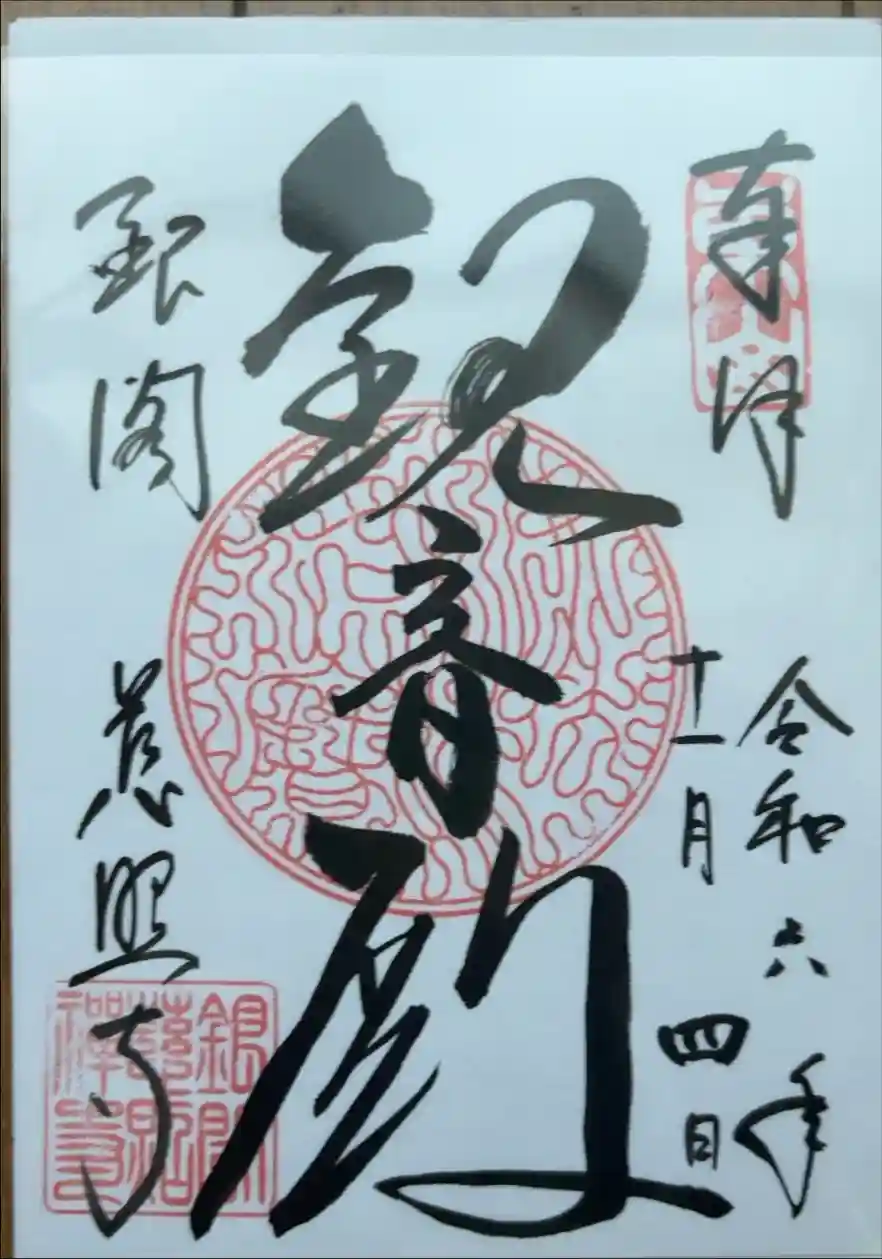 奉拝
令和六年
十一月四日
観音殿
銀閣
慈照寺
銀閣慈照禅寺